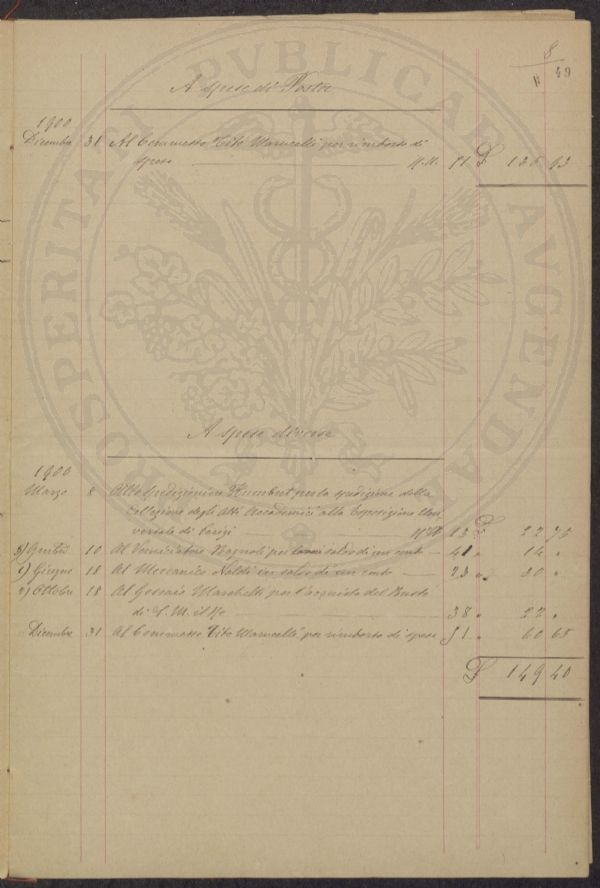 8
49
A spese di Posta
1900
Dicembre 31 Al Commesso Tito Marucelli per rimborso di
spese 51 £ 126 93
A spese diverse
1900
Marzo 8 Allo Spedizioniere Humbert per la spedizione della
collezione degli Atti Accademici alla Esposizione Uni
versale di Parigi 13 £ 22 75
10 Al Verniciatore Bagnoli per saldo di un conto 41 " 14 "
1) Giugno 18 Al Meccanico Naldi in saldo di un conto 23 " 30 "
2) Ottobre 18 Al Marchetti per l'acquisto del Busto
di S. M. il Re 38 " 22 "
Dicembre 31 Al Commesso Tito Marucelli per rimborso di spese 51 " 60 65
£ 149 40
PROSPERITATI PVBLICAE AVGENDAE